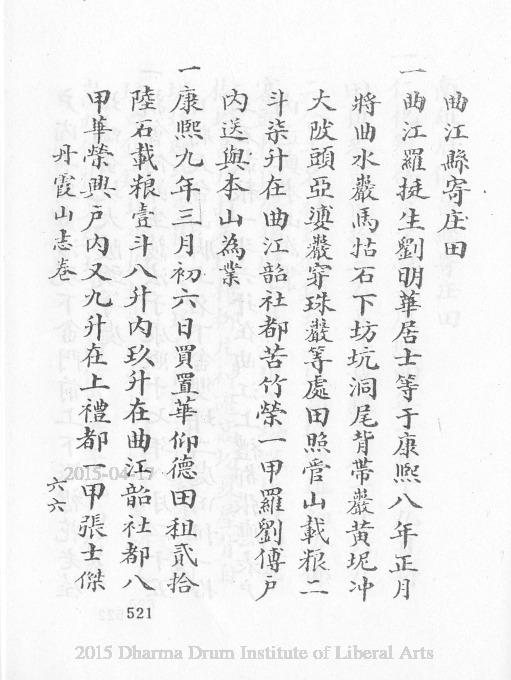 曲江縣寄庄田
一曲江羅挺生劉明華居士等于康熙八年正月
將曲水巖馬拈石下坊坑洞尾背帶巖黃坭冲
大陂頭亞婆巖穿珠巖等處田照營山載粮二
斗柒升在曲江韶社都苦竹榮一甲羅劉傅戶
內送與本山為業
一康熙九年三月初六日買置華仰德田租貳拾
陸石載粮壹斗八升內玖升在曲江韶社都八
甲華榮興戶內又九升在上禮都一甲張士傑
丹霞山志卷
六六
521
2015-04-17
2015 Dharma Drum Institute of Liberal Arts